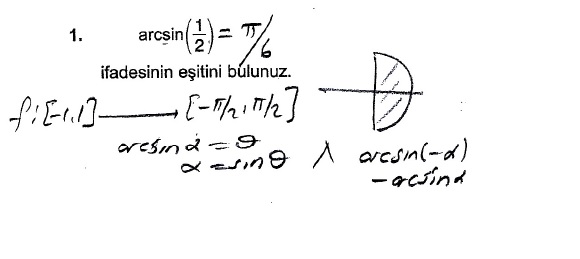 1. arcsin(1/2) = π/6
ifadesinin eşitini bulunuz.
f: [-1,1] ⟶ [-π/2, π/2]
arcsin α = θ
α = sin θ λ arcsin(-α)
-arcsin α